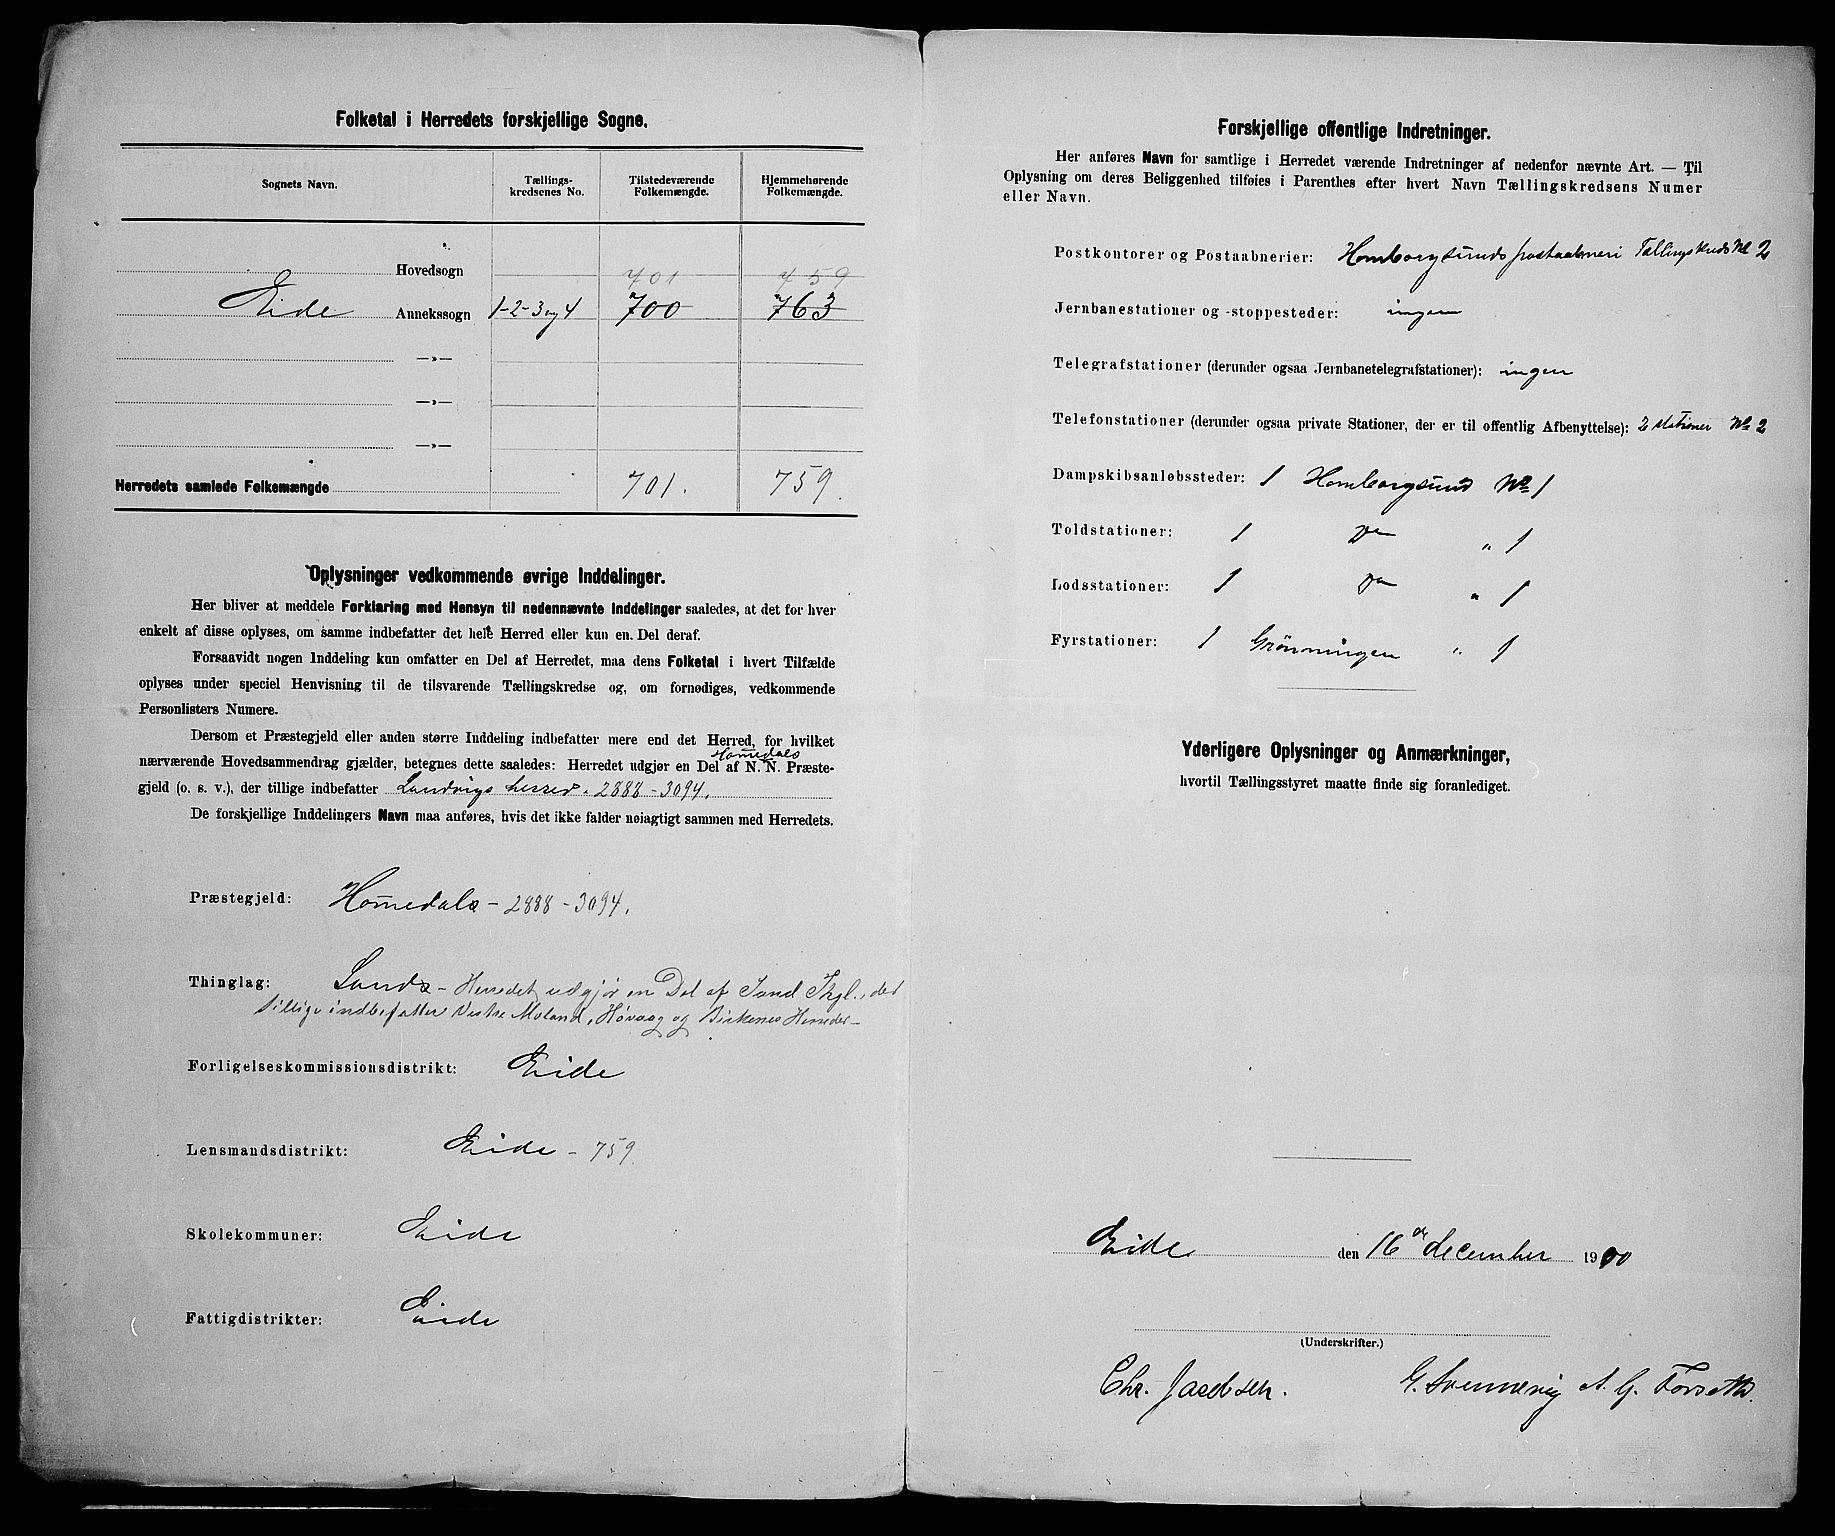 Folketal i Herredets forskjellige Sogne.
Sognets Navn. Tællings-kredsenes No. Tilstedeværende Folkemængde. Hjemmehørende Folkemængde.
Hovedsogn
701 759
Eide Annekssogn 1-2-3og4 700 763
—»—
—»—
—»—
Herredets samlede Folkemængde 701. 759.
Oplysninger vedkommende øvrige Inddelinger.
Her bliver at meddele Forklaring med Hensyn til nedennævnte Inddelinger saaledes, at det for hver
enkelt af disse oplyses, om samme indbefatter det hele Herred eller kun en Del deraf.
Forsaavidt nogen Inddeling kun omfatter en Del af Herredet, maa dens Folketal i hvert Tilfælde
oplyses under speciel Henvisning til de tilsvarende Tællingskredse og, om fornødiges, vedkommende
Personlisters Numere.
Dersom et Præstegjeld eller anden større Inddeling indbefatter mere end det Herred, for hvilket
Homedals
nærværende Hovedsammendrag gjælder, betegnes dette saaledes: Herredet udgjør en Del af N. N. Præste-
gjeld (o. s. v.), der tillige indbefatter Landvigs herred. 2888-3094.
De forskjellige Inddelingers Navn maa anføres, hvis det ikke falder nøiagtigt sammen med Herredets.
Præstegjeld: Homedals - 2888 - 3094.
Thinglag: Sands - Herredet udgjør en Del af Sand Thgl., der
tillige indbefatter Vestre Moland, Høvaag og Birkenes Herreder -
Forligelseskommissionsdistrikt: Eide
Lensmandsdistrikt: Eide - 759.
Skolekommuner: Eide
Fattigdistrikter: Eide
Forskjellige offentlige Indretninger.
Her anføres Navn for samtlige i Herredet værende Indretninger af nedenfor nævnte Art. — Til
Oplysning om deres Beliggenhed tilføies i Parenthes efter hvert Navn Tællingskredsens Numer
eller Navn.
Postkontorer og Postaabnerier: Homborgsunds postaabneri Tællingskreds No 2
Jernbanestationer og -stoppesteder: ingen
Telegrafstationer (derunder ogsaa Jernbanetelegrafstationer): ingen
Telefonstationer (derunder ogsaa private Stationer, der er til offentlig Afbenyttelse): 2 stationer No 2
Dampskibsanløbssteder: 1 Homborgsund No 1
Toldstationer: 1 Do " 1
Lodsstationer: 1 Do " 1
Fyrstationer: 1 Grönningen " 1
Yderligere Oplysninger og Anmærkninger,
hvortil Tællingsstyret maatte finde sig foranlediget.
Eide den 16de december 1900
(Underskrifter.)
Chr. Jacobsen. G. Svennevig A. G. Forseth.